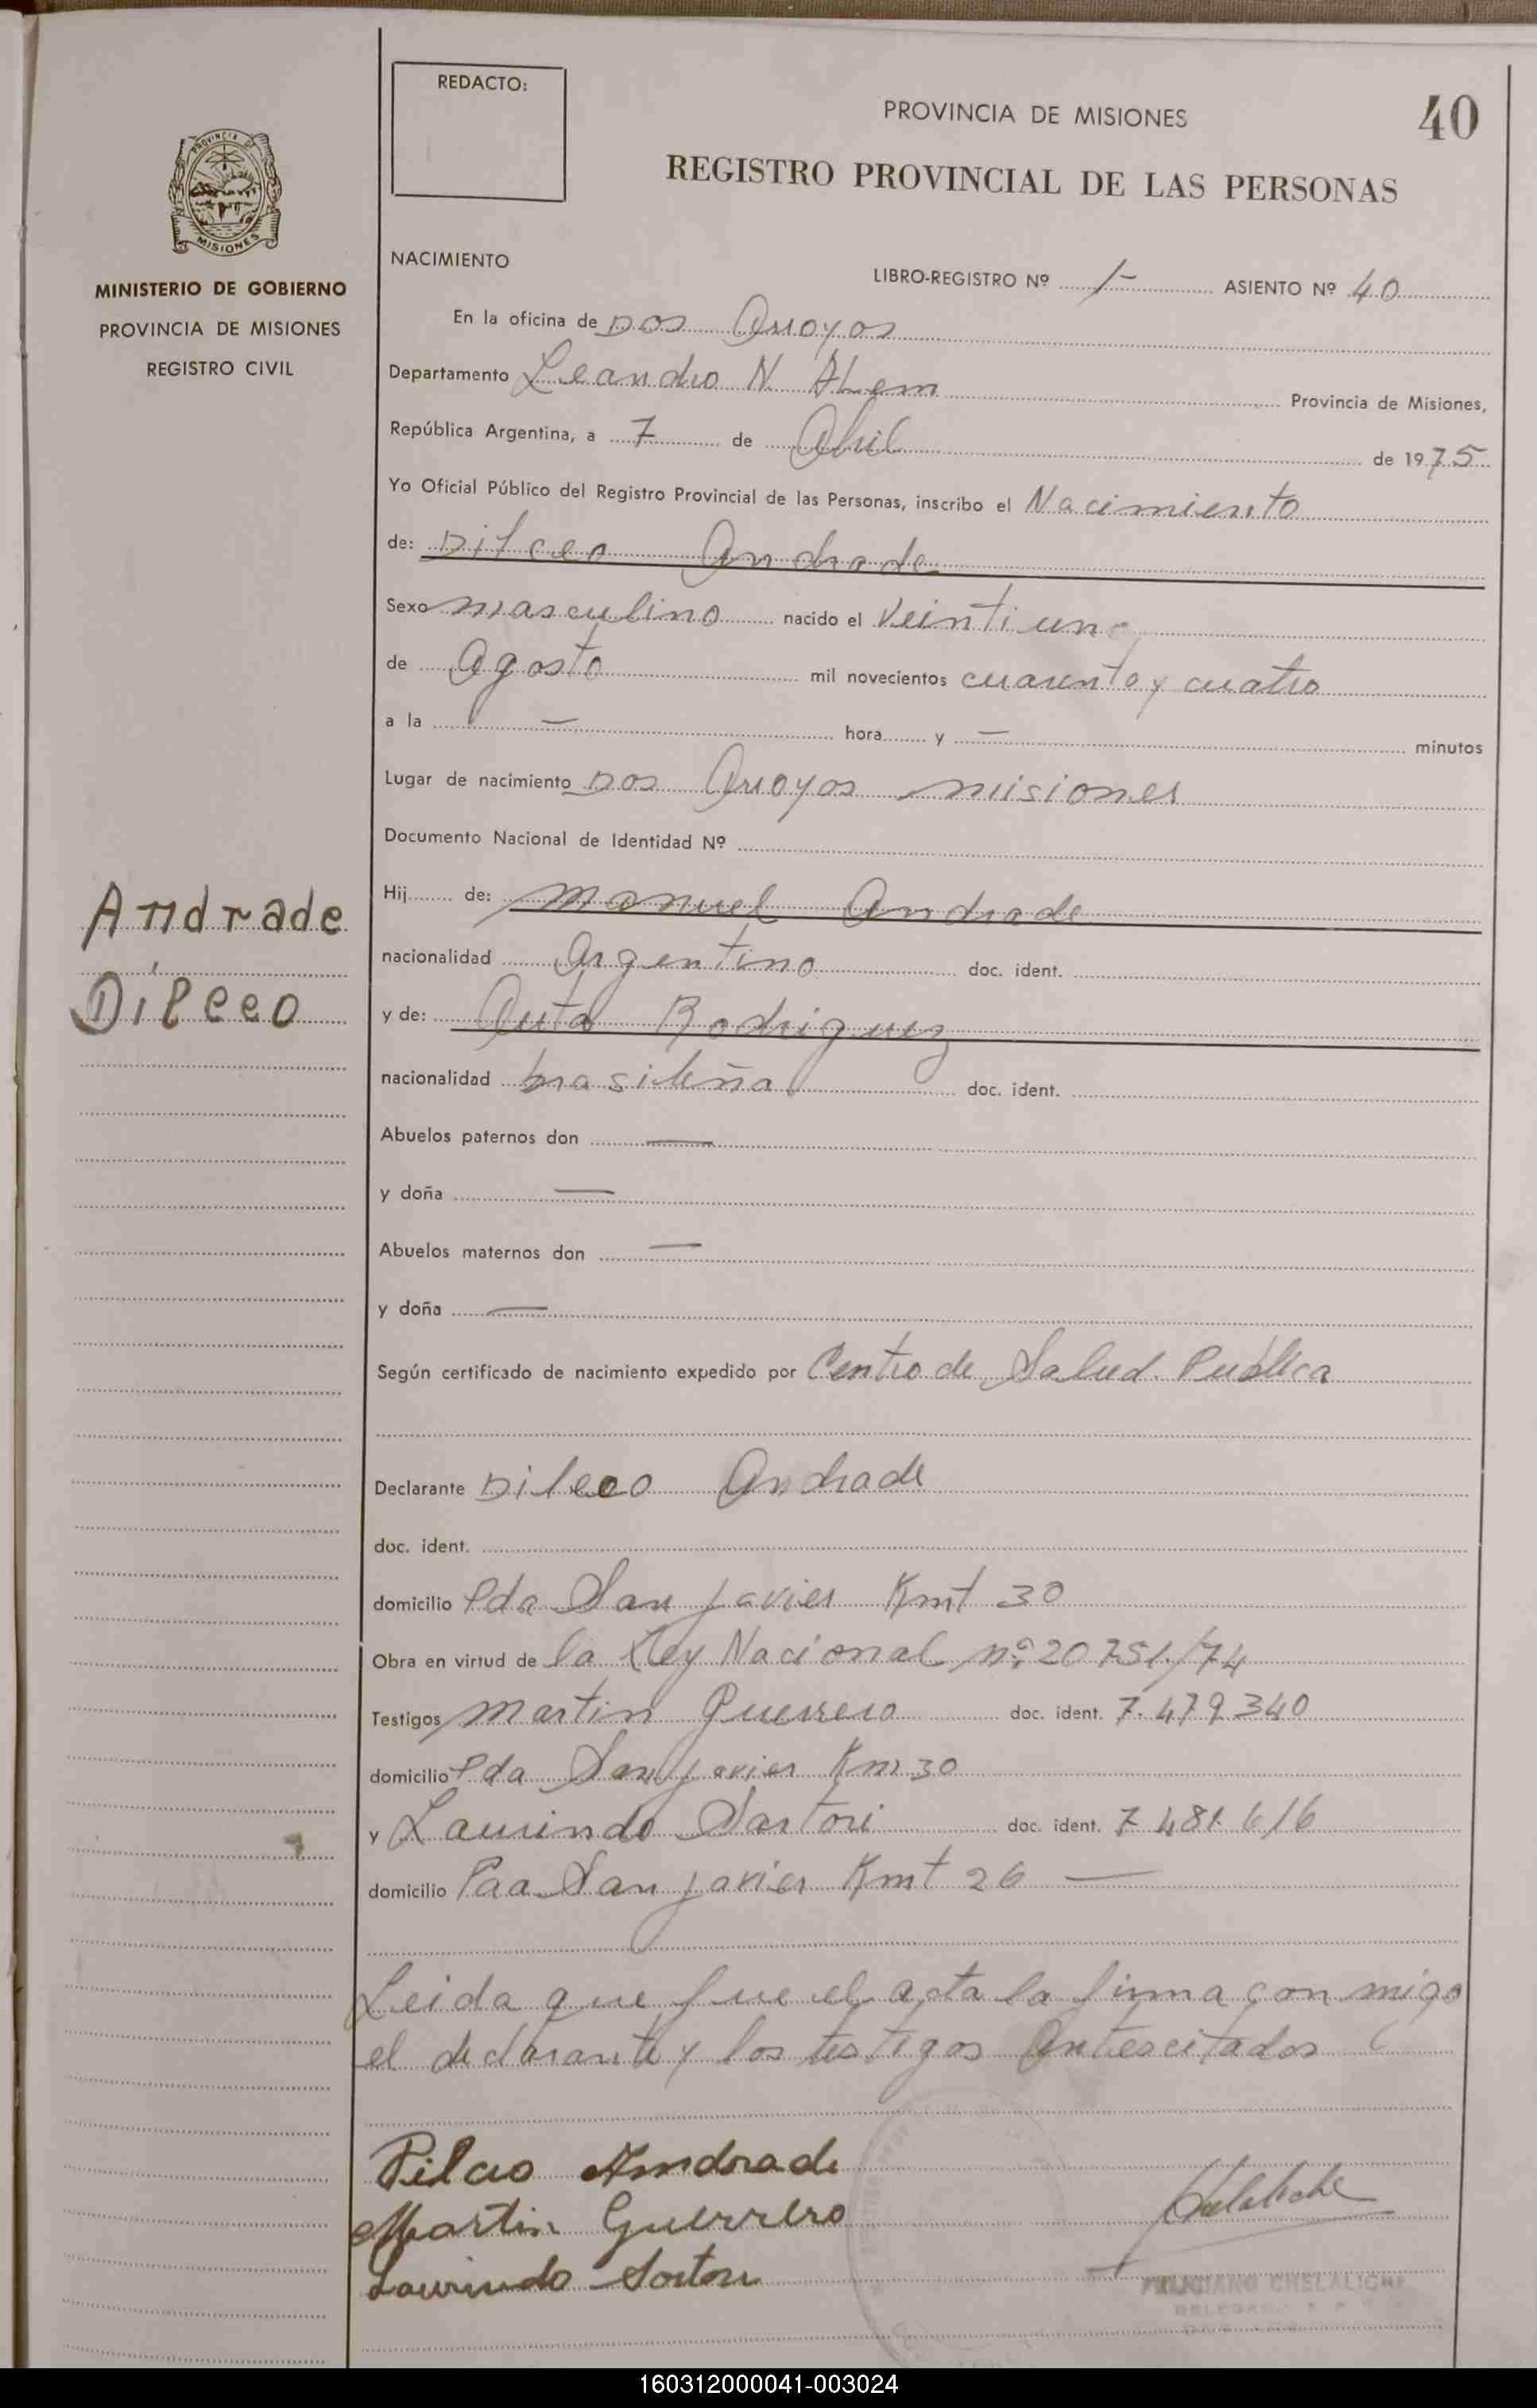 REDACTO:
PROVINCIA DE MISIONES
40
REGISTRO PROVINCIAL DE LAS PERSONAS
PROVINCIA DE
MISIONES
MINISTERIO DE GOBIERNO
PROVINCIA DE MISIONES
REGISTRO CIVIL
NACIMIENTO
LIBRO-REGISTRO Nº 1- ASIENTO Nº 40
En la oficina de Dos Arroyos
Departamento Leandro N Alem Provincia de Misiones,
República Argentina, a 7 de Abril de 1975
Yo Oficial Público del Registro Provincial de las Personas, inscribo el Nacimiento
de: Dilceo Andrade
Sexo masculino nacido el Veintiuno
de Agosto mil novecientos cuarenta y cuatro
a la — hora y — minutos
Lugar de nacimiento Dos Arroyos misiones
Documento Nacional de Identidad Nº
Hij de: Manuel Andrade
nacionalidad Argentino doc. ident.
y de: Rodriguez
nacionalidad brasileña doc. ident.
Abuelos paternos don —
y doña —
Abuelos maternos don —
y doña —
Andrade
Dilceo
Según certificado de nacimiento expedido por Centro de Salud Publica
Declarante Dilceo Andrade
doc. ident.
domicilio Pda San Javier Kmt 30
Obra en virtud de la Ley Nacional nº 20751/74
Testigos Martin Guerrero doc. ident. 7.479340
domicilio Pda San Javier Km 30
y Laurindo Sartori doc. ident. 7 481.616
domicilio San Javier Kmt 26 —
Leida que fue el acta la firma con migo
el declarante y los testigos Antescitados
Dilceo Andrade
Martin Guerrero
Laurindo Sartori
FELICIANO CHELALICHE
160312000041-003024